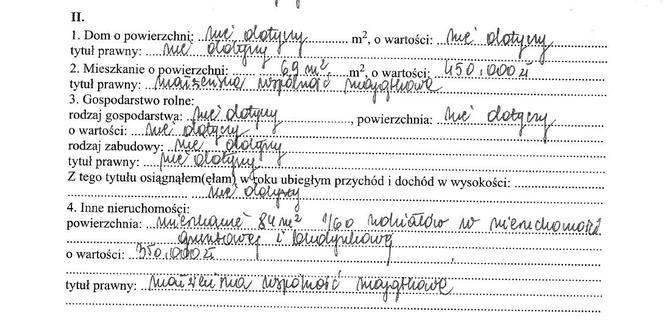 II.
1. Dom o powierzchni: nie dotyczy m², o wartości: nie dotyczy
tytuł prawny: nie dotyczy
2. Mieszkanie o powierzchni: 69 m², m², o wartości: 450.000 zł
tytuł prawny: małżeńska wspólność majątkowa
3. Gospodarstwo rolne:
rodzaj gospodarstwa: nie dotyczy, powierzchnia: nie dotyczy
o wartości: nie dotyczy
rodzaj zabudowy: nie dotyczy
tytuł prawny: nie dotyczy
Z tego tytułu osiągnąłem(ęłam) w roku ubiegłym przychód i dochód w wysokości:
nie dotyczy
4. Inne nieruchomości:
powierzchnia: mieszkanie 84 m² 1/60 udziałów w nieruchomości
gruntowej i budynkowej
o wartości: 350.000 zł
tytuł prawny: małżeńska wspólność majątkowa